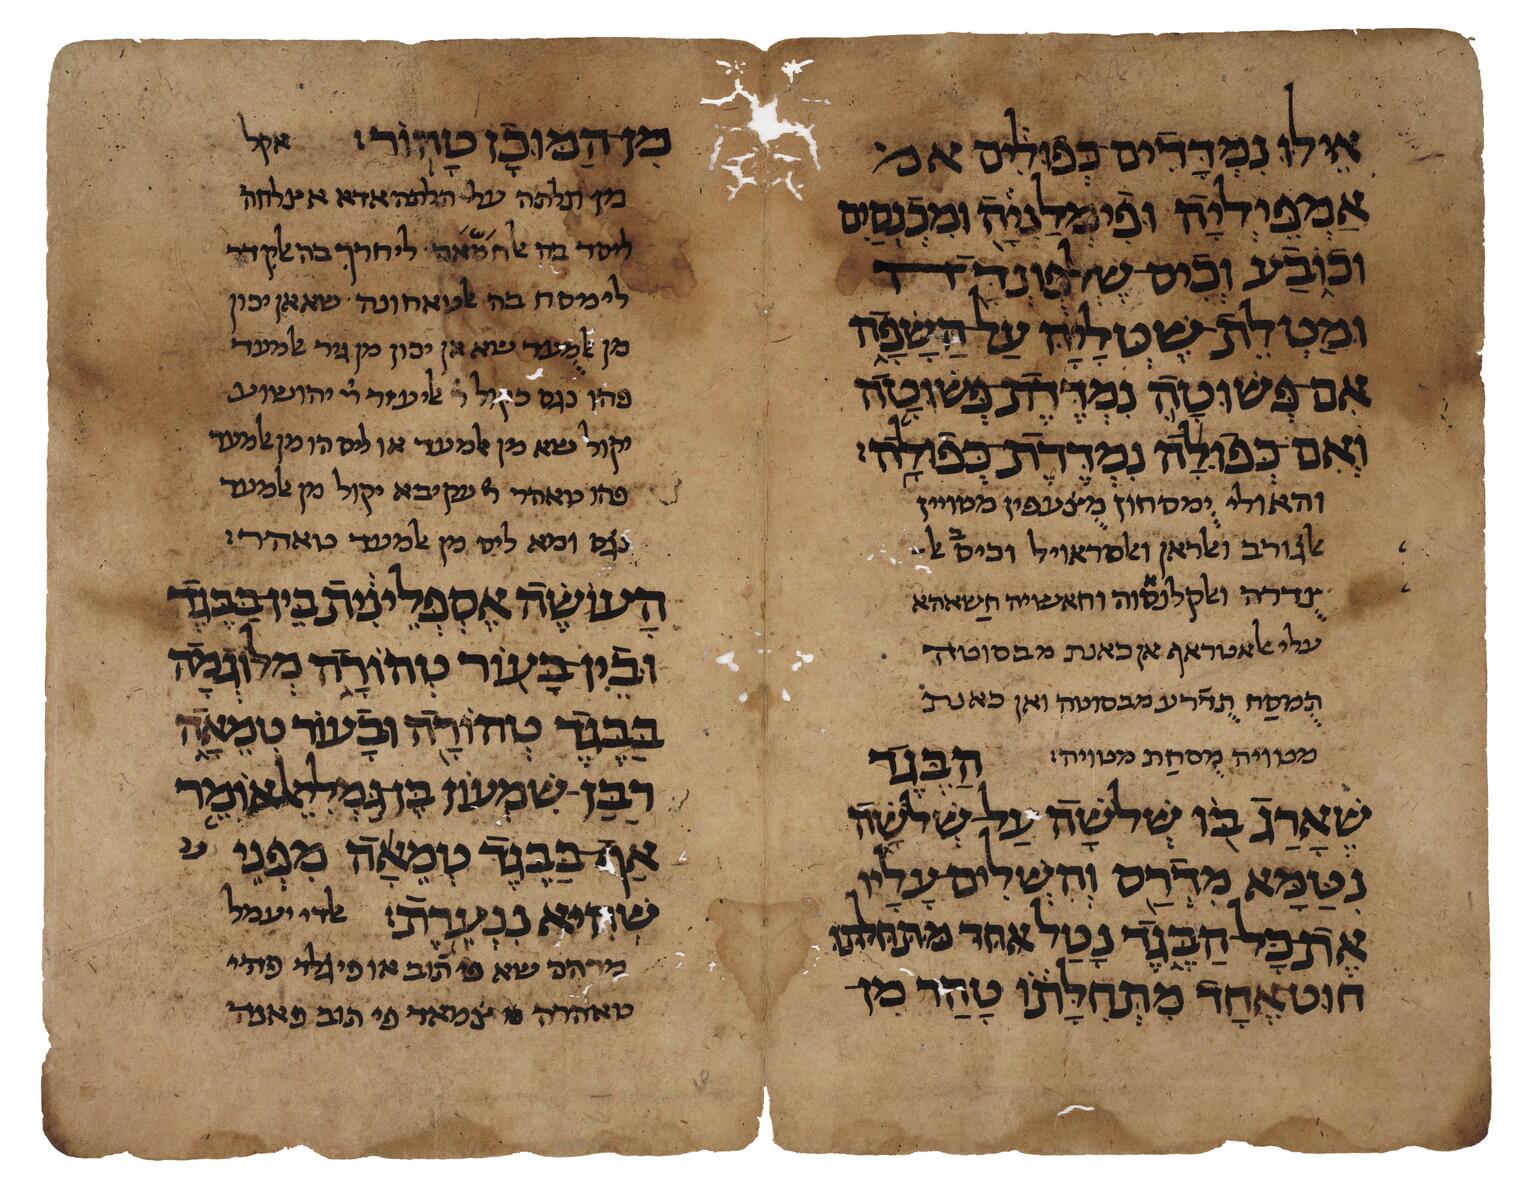 אֵילוּ נִמְדָּדִים כְּפוּלִים אמ׳
אַמְפִּילְיָה וּפִימַלַנְיָה וּמִכְנָסַיִם
וְכוֹבַע וְכִיס שֶׁלְפוּנְדָּה
וּמַטְלֵת שֶׁטְלָיָה עַל הַשָּׂפָה
אִם פְּשׁוּטָה נִמְדֶּדֶת פְּשׁוּטָה
וְאִם כְּפוּלָה נִמְדֶּדֶת כְּפוּלָה:
והאולי ימסחון מצעפין מטויין
אלגורב ואלראן ואלסראויל וכיס אל
נדרה ואלקלנסוה וחאשויה חאשאהא
עלי אלאטראף אן כאנת מבסוטה
תמסח תדרע מבסוטה ואן כאנת
מטויה מסחת מטויה: הַבֶּגֶד
שֶׁאָרַג בּוֹ שְׁלֹשָׁה עַל שְׁלֹשָׁה
נִטַּמָּא מִדְרָס וְהִשְׁלִים עָלָיו
אֶת כָּל הַבֶּגֶד נָטַל אחד מתחילתו
חוּט אֶחָד מִתְּחִלָּתוֹ טָהַר מִן
מִן הַמּוּכָן טָהוֹר: אקל
מן תלתה עלי תלתה אדא אצלחה
ליסד בה אלחמאה ליחרך בה אלקדר
לימסח בה אלטאחונה שא אן יכון
מן אלמעד שא אן יכון מן גיר אלמעד
פהו נגס כקול ר׳ אליעזר ר׳ יהושוע
יקול שא מן אלמעד או ליס הו מן אלמעד
פהו טאהר ר׳ עקיבא יקול מן אלמעד
נגס ומא ליס מן אלמעד טאהר:
הָעוֹשֶׂה אֶסְפְּלֵינִית בֵּין בַּבֶּגֶד
וּבֵין בָּעוֹר טְהוֹרָה מְלוּגְמָה
בַּבֶּגֶד טְהוֹרָה וּבָעוֹר טְמֵאָה
רַבַּן שִׁמְעוֹן בֶּן גַּמְלִיאֵל אוֹמֵר
אַף בַּבֶּגֶד טְמֵאָה מִפְּנֵי ש
שֶׁהִיא נִנְעֶרֶת: אלדי יעמל
מרהם שא פי תוב או פי גלד פהי
טאהרה צמאד פי תוב פאנה